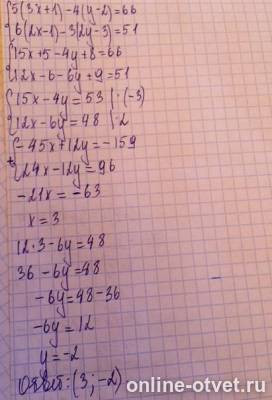 {5(3x+1)-4(y-2)=66
{6(2x-1)-3(2y-3)=51
{15x+5-4y+8=66
{12x-6-6y+9=51
{15x-4y=53 |·(-3)
{12x-6y=48 |·2
+{-45x+12y=-159
{24x-12y=96
-21x=-63
x=3
12·3-6y=48
36-6y=48
-6y=48-36
-6y=12
y=-2
Ответ:(3;-2)
online-otvet.ru